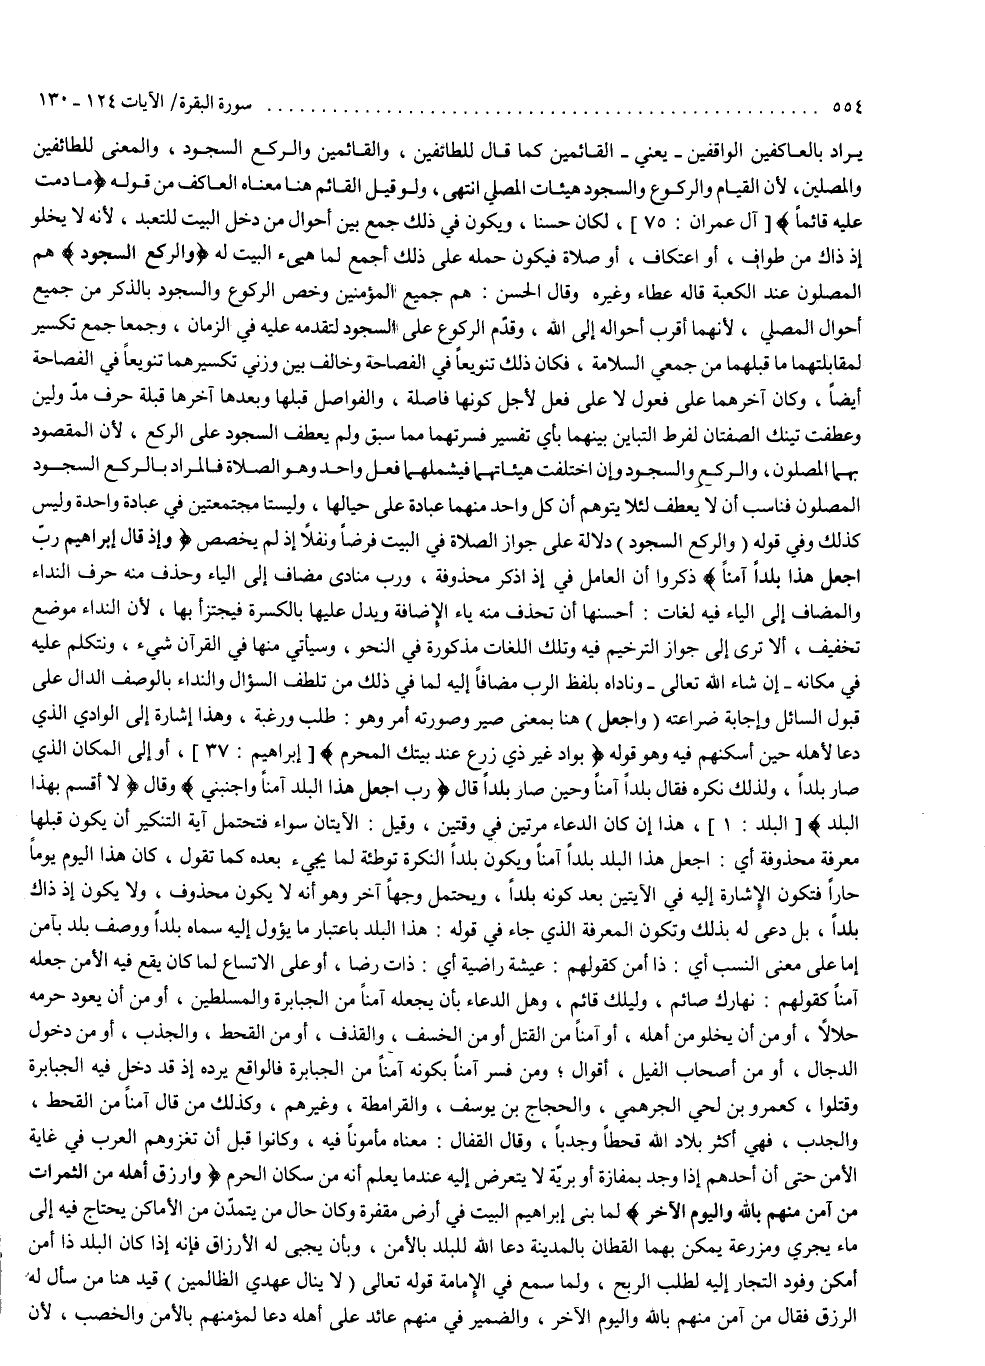 ٥٥٤ ........................................................ سورة البقرة/ الآيات ١٢٤ ـ ١٣٠
يراد بالعاكفين الواقفين ـ يعني ـ القائمين كما قال للطائفين ، والقائمين والركع السجود ، والمعنى للطائفين
والمصلين، لأن القيام والركوع والسجود هيئات المصلي انتهى ، ولو قيل القائم هنا معناه العاكف من قوله ﴿ما دمت
عليه قائماً ﴾[ آل عمران : ٧٥ ] ، لكان حسنا ، ويكون في ذلك جمع بين أحوال من دخل البيت للتعبد ، لأنه لا يخلو
إذ ذاك من طواف ، أو اعتكاف ، أو صلاة فيكون حمله على ذلك أجمع لما هيىء البيت له ﴿والركع السجود ﴾ هم
المصلون عند الكعبة قاله عطاء وغيره وقال الحسن : هم جميع المؤمنين وخص الركوع والسجود بالذكر من جميع
أحوال المصلي ، لأنهما أقرب أحواله إلى الله ، وقدّم الركوع على السجود لتقدمه عليه في الزمان ، وجمعا جمع تكسير
لمقابلتهما ما قبلهما من جمعي السلامة ، فكان ذلك تنويعاً في الفصاحة وخالف بين وزني تكسيرهما تنويعاً في الفصاحة
أيضاً ، وكان آخرهما على فعول لا على فعل لأجل كونها فاصلة ، والفواصل قبلها وبعدها آخرها قبلة حرف مدّ ولين
وعطفت تينك الصفتان لفرط التباين بينهما بأي تفسير فسرتهما مما سبق ولم يعطف السجود على الركع ، لأن المقصود
بهما المصلون، والركع والسجود وإن اختلفت هيئاتهما فيشملهما فعل واحد وهو الصلاة فالمراد بالركع السجود
المصلون فناسب أن لا يعطف لئلا يتوهم أن كل واحد منهما عبادة على حيالها ، وليستا مجتمعتين في عبادة واحدة وليس
كذلك وفي قوله ( والركع السجود ) دلالة على جواز الصلاة في البيت فرضاً ونفلاً إذ لم يخصص ﴿ وإذ قال إبراهيم ربّ
اجعل هذا بلداً آمناً ﴾ ذكروا أن العامل في إذ اذكر محذوفة ، ورب منادى مضاف إلى الياء وحذف منه حرف النداء
والمضاف إلى الياء فيه لغات : أحسنها أن تحذف منه ياء الإضافة ويدل عليها بالكسرة فيجتزأ بها ، لأن النداء موضع
تخفيف ، ألا ترى إلى جواز الترخيم فيه وتلك اللغات مذكورة في النحو ، وسيأتي منها في القرآن شيء ، ونتكلم عليه
في مكانه ـ إن شاء الله تعالى ـ وناداه بلفظ الرب مضافاً إليه لما في ذلك من تلطف السؤال والنداء بالوصف الدال على
قبول السائل وإجابة ضراعته ( واجعل ) هنا بمعنى صير وصورته أمر وهو : طلب ورغبة ، وهذا إشارة إلى الوادي الذي
دعا لأهله حين أسكنهم فيه وهو قوله ﴿ بواد غير ذي زرع عند بيتك المحرم ﴾[ إبراهيم : ٣٧ ] ، أو إلى المكان الذي
صار بلداً ، ولذلك نكره فقال بلداً آمناً وحين صار بلداً قال ﴿ رب اجعل هذا البلد آمناً واجنبني ﴾ وقال ﴿ لا أقسم بهذا
البلد ﴾ [ البلد : ١ ] ، هذا إن كان الدعاء مرتين في وقتين ، وقيل : الآيتان سواء فتحتمل آية التنكير أن يكون قبلها
معرفة محذوفة أي : اجعل هذا البلد بلداً آمناً ويكون بلداً النكرة توطئة لما يجيء بعده كما تقول ، كان هذا اليوم يوماً
حاراً فتكون الإشارة إليه في الآيتين بعد كونه بلداً ، ويحتمل وجهاً آخر وهو أنه لا يكون محذوف ، ولا يكون إذ ذاك
بلداً ، بل دعى له بذلك وتكون المعرفة الذي جاء في قوله : هذا البلد باعتبار ما يؤول إليه سماه بلداً ووصف بلد بآمن
إما على معنى النسب أي : ذا أمن كقولهم : عيشة راضية أي : ذات رضا ، أو على الاتساع لما كان يقع فيه الأمن جعله
آمناً كقولهم : نهارك صائم ، وليلك قائم ، وهل الدعاء بأن يجعله آمناً من الجبابرة والمسلطين ، أو من أن يعود حرمه
حلالاً ، أو من أن يخلو من أهله ، أو آمناً من القتل أو من الخسف ، والقذف ، أو من القحط ، والجذب ، أو من دخول
الدجال ، أو من أصحاب الفيل ، أقوال ؛ ومن فسر آمناً بكونه آمناً من الجبابرة فالواقع يرده إذ قد دخل فيه الجبابرة
وقتلوا ، كعمرو بن لحي الجرهمي ، والحجاج بن يوسف ، والقرامطة ، وغيرهم ، وكذلك من قال آمناً من القحط ،
والجدب ، فهي أكثر بلاد الله قحطاً وجدباً ، وقال القفال : معناه مأموناً فيه ، وكانوا قبل أن تغزوهم العرب في غاية
الأمن حتى أن أحدهم إذا وجد بمفازة أو بريّة لا يتعرض إليه عندما يعلم أنه من سكان الحرم ﴿ وارزق أهله من الثمرات
من آمن منهم بالله واليوم الآخر ﴾ لما بنى إبراهيم البيت في أرض مقفرة وكان حال من يتمدّن من الأماكن يحتاج فيه إلى
ماء يجري ومزرعة يمكن بهما القطان بالمدينة دعا الله للبلد بالأمن ، وبأن يجبى له الأرزاق فإنه إذا كان البلد ذا أمن
أمكن وفود التجار إليه لطلب الربح ، ولما سمع في الإمامة قوله تعالى ( لا ينال عهدي الظالمين ) قيد هنا من سأل له
الرزق فقال من آمن منهم بالله واليوم الآخر ، والضمير في منهم عائد على أهله دعا لمؤمنهم بالأمن والخصب ، لأن